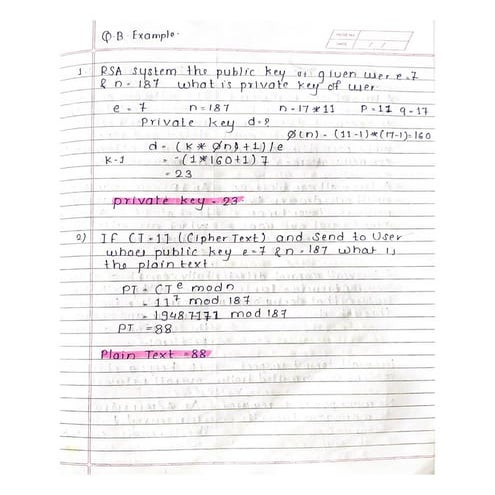 Q.B. Example.
PAGE NO.
DATE / /
1. RSA system the public key of given user e=7
& n = 187 what is private key of user
e = 7 n = 187 n = 17 * 11 P = 11 q = 17
Private key d = ?
Ø(n) = (11-1)*(17-1)=160
d = (K * Øn) + 1) / e
K=1 = (1*160+1) 7
= 23
private key = 23
2) If CT = 11 (Cipher Text) and Send to User
whoes public key e=7 & n = 187 what is
the plain text.
PT = CTᵉ mod n
= 11⁷ mod 187
= 19487171 mod 187
PT = 88
Plain Text = 88